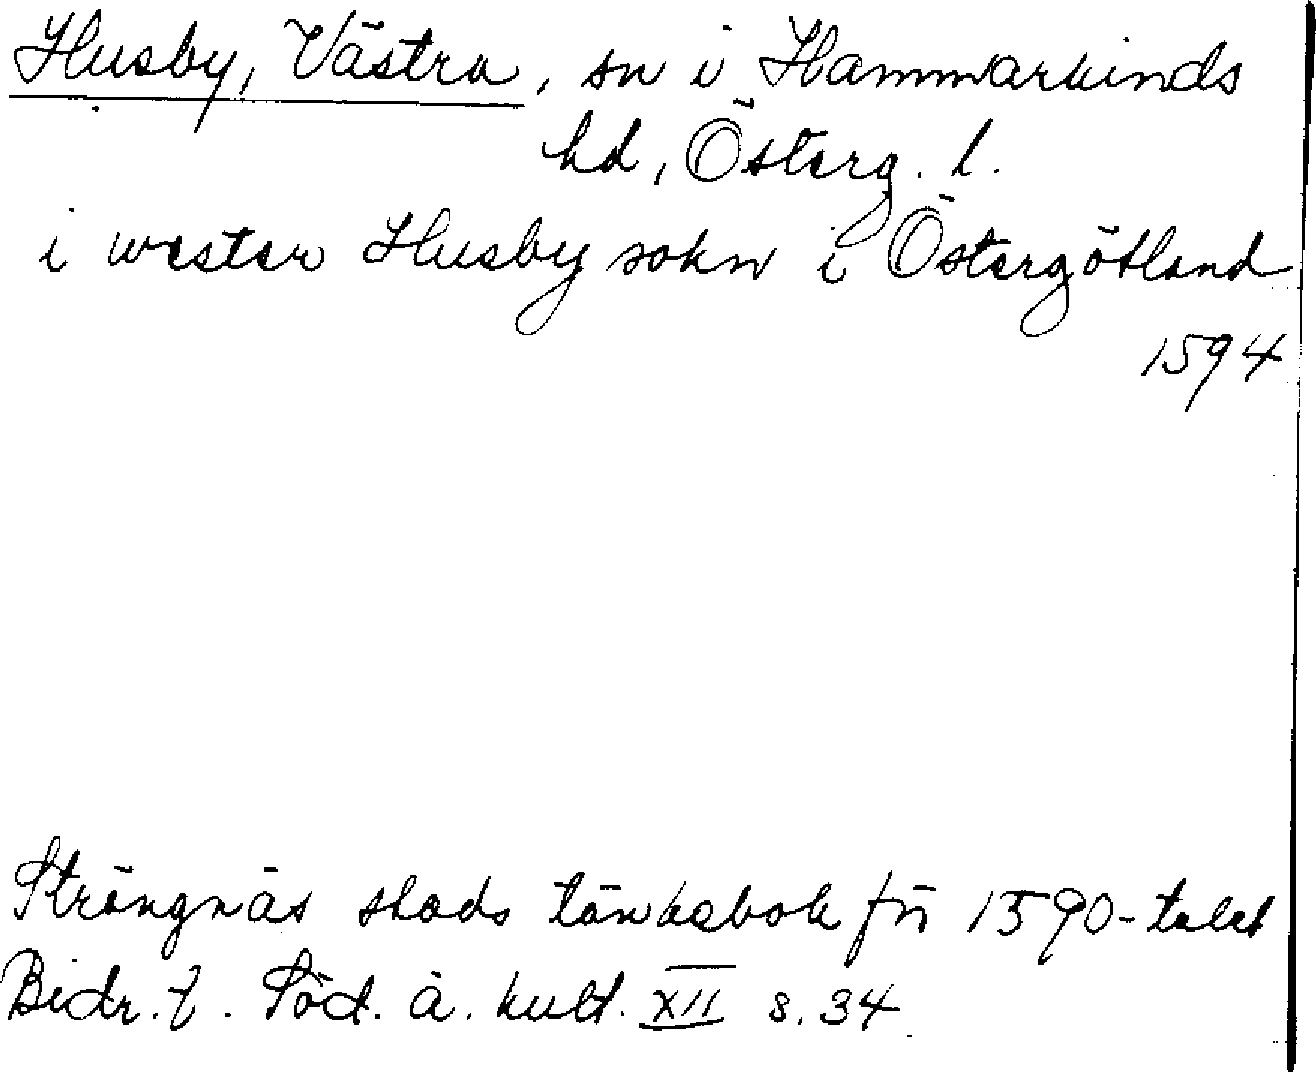 Husby, Västra, sn i Hammarkinds
hd, Österg. l.
i wester Husby sokn i Östergötland
1594
Strängnäs stads tänkebok för 1590-talet
Bidr. t. Söd. ä. kult. XII s. 34